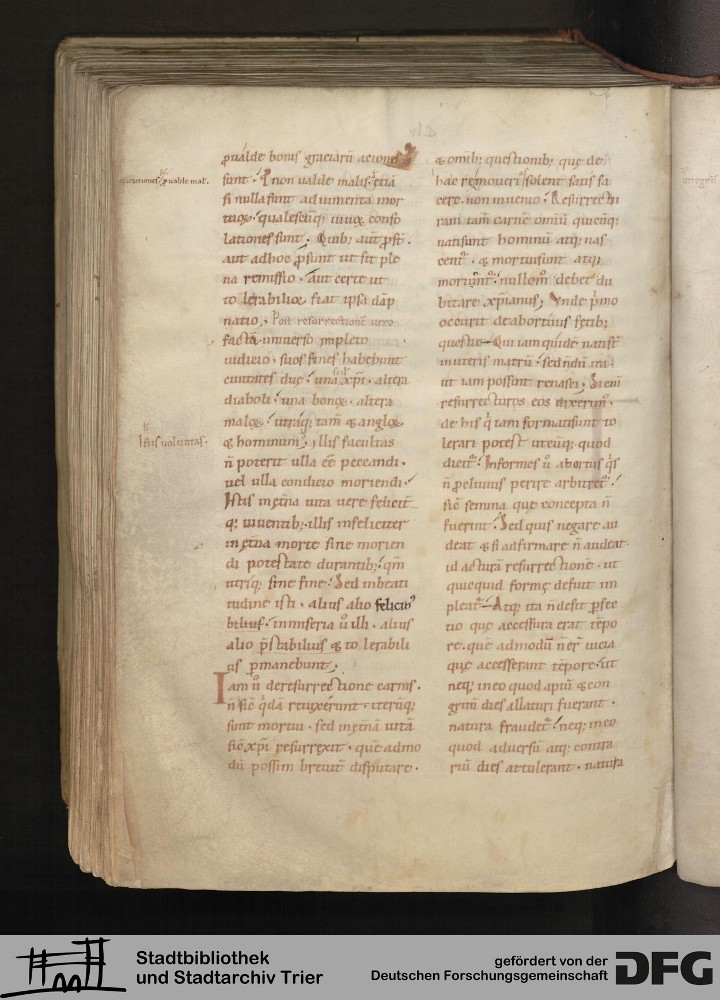 ꝓualde bonis graciarū acciones
sunt · ꝑ non ualde malis · &ia
si nulla sunt adiumenta mor
tuoꝝ · qualescūq; uiuoꝝ conso
lationes sunt · Quib; aut̄ ꝓst̄ ·
aut adhoc ꝓsunt ut sit ple
na remissio · aut certe ut
tolerabilior fiat ipsa dāp
natio · Post resurrectionē uero
facta uniuerso impleto
iudicio · suos fines habebunt
ciuitates duę · una xp̄i · altera
diaboli · una bonoꝝ · altera
maloꝝ · utraq; tam̄ & angloꝝ
& hominum · illis facultas
n̄ poterit ulla eē peccandi ·
uel ulla condicio moriendi ·
Istis in ęt̄na uita uere felicit̄
q; uiuentib; · illis infeliciter
in ęt̄na morte sine morien
di potestate durantib; · qm̄
utriq; sine fine · Sed in beati
tudine isti · alius alio felicius
bilius · in miseria ū illi · alius
alio p̄stabilius & tolerabili
us ꝑmanebunt ·
Iam ū de resurrectione carnis ·
n̄ sic̄ q̇dā reuixerunt · iterūq;
sunt mortui · sed in ęt̄nā uitā
sic̄ xp̄i resurrexit · quē admo
dū possim breuit̄ disputare ·
& om̄ib; questionib; quę de
hac remoueri solent satis fa
cere · non inuenio · Resurrectu
ram tam̄ carnē om̄iū quicūq;
nati sunt hominum atq; nas
cent᷑ · & mortui sunt atq;
morient᷑ · nullom̊ debet du
bitare xp̄ianus · Vnde p̍mo
occurit de abortiuis fetib;
questio · Qui iam quidē nati st̄
in uteris matrū · sed n̄dū ita ·
ut iam possint renasci · Si eni̅
resurrecturos eos dixerim᷒ ·
de his q̇ iam formati sunt to
lerari potest utcūq; quod
dicit᷑ · Informes ū abortus q̇s
n̄ ꝓcliuius perire arbitret᷑ ·
sic̄ semina quę concepta n̄
fuerint · Sed quis negare au
deat & si adfirmare n̄ audeat ·
id acturā resurrectionē · ut
quicquid formę defuit im
pleat᷑ · Atq; ita n̄ desit ꝑfec
tio quę accessura erat tēpo
re · quē admodū n̄ er̄ uicia
quę accesserant tēpore · ut
neq; in eo quod aptū & con
gruū dies allaturi fuerant ·
natura fraudet᷑ · neq; in eo
quod aduersū atq; contra
riū dies attulerant · natura
Istis uoluntas ·
Stadtbibliothek
und Stadtarchiv Trier
gefördert von der
Deutschen Forschungsgemeinschaft
DFG